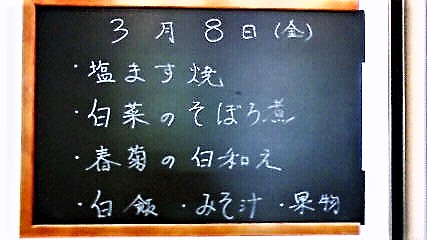 3月8日(金)
・塩ます焼
・白菜のそぼろ煮
・春菊の白和え
・白飯 ・みそ汁 ・果物